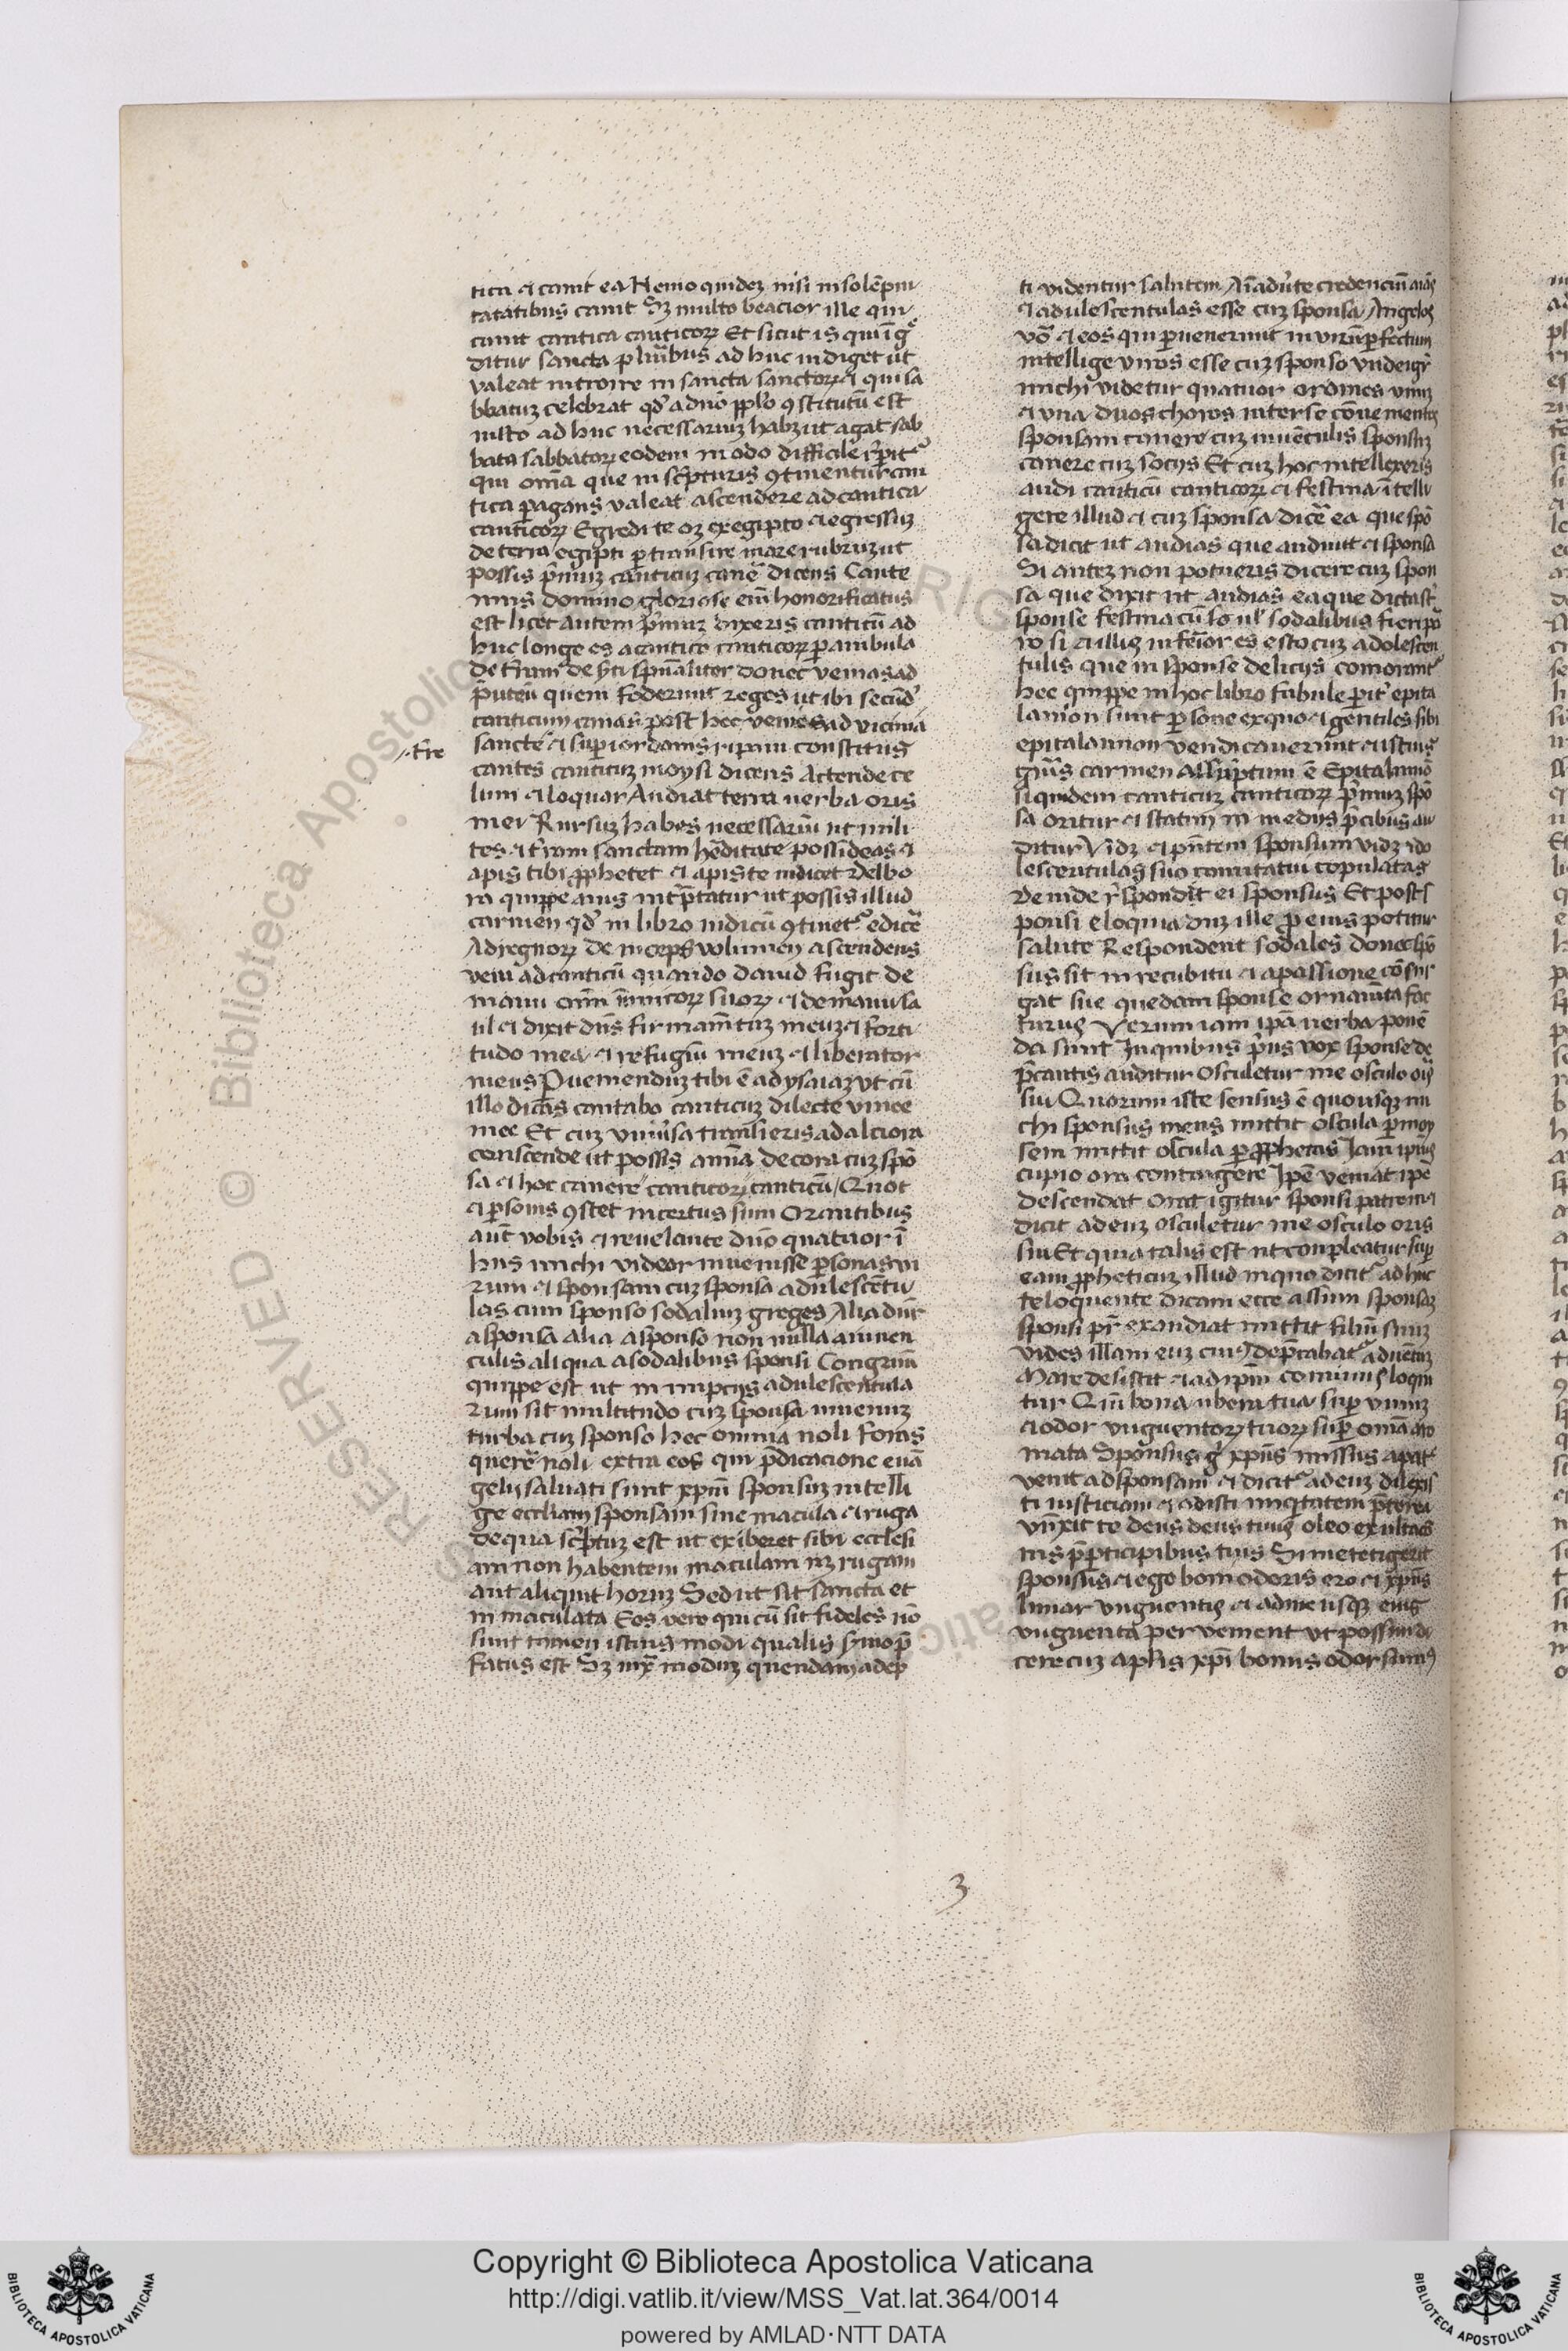 tica et canit ea Nemo quidez nisi in solẽpni
tatatibus canit Sꝫ multo beacior ille qui
canit cantica canticoꝝ Et sicut is qui ĩgͤ
ditur sancta pluribus ad huc indiget ut
valeat introire in sancta sanctoꝝ et qui sa
bbatuz celebrat qd̕ a dno pplo ꝯstitutũ est
multo ad huc necessariuz habz ut agat sab
bata sabbatoꝝ eodem modo difficile rͤpit᷑
qui om̃a que in sc̃pturis ꝯtinentur can
tica pagans valeat ascendere ad cantica
canticoꝝ Egredi te oꝫ ex egipto et egressuz
de terra egipti ptransire mare rubruz ut
possis p̃muz canticuz canẽ dicens Cante
mus domino gloriose em̃ honorificatus
est licet autem p̃muz dixeris canticũ ad
huc longe es a cantico canticoꝝ pambula
de tr̃am des̃ti spũaliter donec venias ad
puteũ quem foderunt reges ut ibi secũd̕
canticum canas post hec venies ad viciniã
·tre
sancte et super iordanis ripam constitus
cantes canticuz moysi dicens Actende ce
lum et loquar Audiat terra uerba oris
mei Rursuz habes necessariũ ut mili
tes et tr̃am sanctam hẽditate possideas et
apis tibi ꝓphetet et apis te iudicet Delbo
ra quippe apis intp̃tatur ut possis illud
carmen qd̕ in libro iudicũ ꝯtinet᷑ edicẽ
Ad regnoꝝ deinceps volumen ascendens
veni ad canticũ quando dauid fugit de
manu om̃ ĩimicoꝝ suoꝝ et de manu sa
ul et dixit dñs firmam̃tuz meuz et forti
tudo mea et refugiũ meuz et liberator
meus Pueniendũz tibi ẽ ad ysaiaz ut cũ
illo dicas cantabo canticuz dilecte vinee
mee Et cuz uniũsa transieris ad alciora
conscende ut possis anĩa decora cuz spõ
sa et hoc canere canticoꝝ canticũ Quot
et psonis ꝯstet incertus sum Orantibus
aut̃ vobis et reuelante dño quatuor ĩ
hiis michi videor inuenisse psonas vi
rum et sponsam cuz sponsa adulescẽtu
las cum sponso sodaliuz greges Alia dñr
a sponsa alia a sponso non nulla a iuuen
culis aliqua a sodalibus sponsi Congruũ
quippe est ut in nupciis adulescentula
rum sit multitudo cuz sponsa iuuenuz
turba cuz sponso hec omnia noli foras
querẽ noli extra eos qui p̃dicacione euã
gelij saluati sunt xp̃m sponsuz intelli
ge eccliam sponsam sine macula et ruga
de qua sc̃ptuz est ut exiberet sibi ecclesi
am non habentem maculam nꝫ rugam
aut aliquit horuz Sed ut sit sancta et
in maculata Eos vero qui cũ sit fideles nõ
sunt tamen istius modi qualis s̃mo p̃
fatus est Sꝫ iux̃ moduz quendam adep
ti videntur salutem Aĩaduẽte credenciũ aĩas
et adulescentulas esse cuz sponsa Angelos
võ et eos qui puenerunt in uiruz pfectum
intellige viros esse cuz sponso Vnde igr̃
michi videtur quatuor ordines unuz
et vna duos choros inter se cõuenientes
sponsam canere cuz iuuẽculis sponsuz
canere cuz socijs Et cuz hoc intellexeris
audi canticũ canticoꝝ et festina ĩtelli
gere illud et cuz sponsa dicẽ ea que spõ
sa dicit ut audias que audiuit et sponsa
Si autez non potueris dicere cuz spon
sa que dixit ut audias ea que dicta st̃
sponse festina cũ sõ ul̕ sodalibus fieri pͦ
ro si et illis infeĩor es esto cuz adolescen
tulis que in sponse delicijs comorant᷑
hec quippe in hoc libro fabule pit̕ epita
lamion sunt psone ex quo et gentiles sibi
epitalamion vendicauerunt et istius
gn̕is carmen assũptum ẽ Epitalamiõ
siquidem canticuz canticoꝝ p̃muz spõ
sa oritur et statim in medijs p̃cibus au
ditur Vidꝫ et p̃ntem sponsum vidꝫ ado
lescentulas suo comitatui copulatas
Deinde rͤspondit ei sponsus Et post s
ponsi eloquia duz ille pro eius potitur
salute Respondent sodales donec spõ
sus sit in recubitu et a passione cõsur
gat sue quedam sponse ornam̃ta fac
turus Verum iam ipã uerba ponẽ
da sunt In quibus p̃us vox sponse de
p̃cantis auditur Osculetur me osculo oris
sui Quorum iste sensus ẽ quousqꝫ mi
chi sponsus meus mittit oscula p moy
sem mittit oscula p ꝓphetas Iam ipius
cupio ora contingere Ipẽ veniat ipe
descendat Orat igitur sponsi patrem et
dicit ad euz osculetur me osculo oris
sui Et quia talis est ut conpleatur sup
eam ꝓpheticuz illud in quo dicit᷑ ad huc
te loquente dicam ecce assum sponsaz
sponsi pr̃ exaudiat mittit filiũ suuz
vides illam euz cuiꝰ dep̃cabat᷑ aduẽtuz
Mare desistit et ad ipm̃ cominus loqui
tur Qm̃ bona ubera tua sup vinuz
et odor vnguentoꝝ tuoꝝ sup om̃a aro
mata Sponsus gͦ xp̃us missus a pat̕
venit ad sponsam et dicit᷑ ad euz dilexis
ti iusticiam et odisti iniq̃tatem p̃terea
vnxit te deus deus tuus oleo exultacõ
nis p̃ pticipibus tuis Si me tetigerit
sponsus et ego boni odoris ero et xp̃us
linuar vnguentis et ad me usqꝫ eius
vnguenta perveniunt vt possim di
cere cuz apl̕is xp̃i bonus odor sumꝰ
3
Copyright © Biblioteca Apostolica Vaticana
http://digi.vatlib.it/view/MSS_Vat.lat.364/0014
powered by AMLAD·NTT DATA